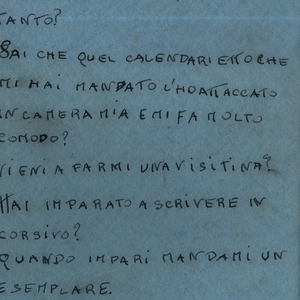 TANTO?
SAI CHE QUEL CALENDARIETTO CHE
MI HAI MANDATO L'HO ATTACCATO
IN CAMERA MIA E MI FA MOLTO
COMODO?
VIENI A FARMI UNA VISITINA?
HAI IMPARATO A SCRIVERE IN
CORSIVO?
QUANDO IMPARI MANDAMI UN
ESEMPLARE.